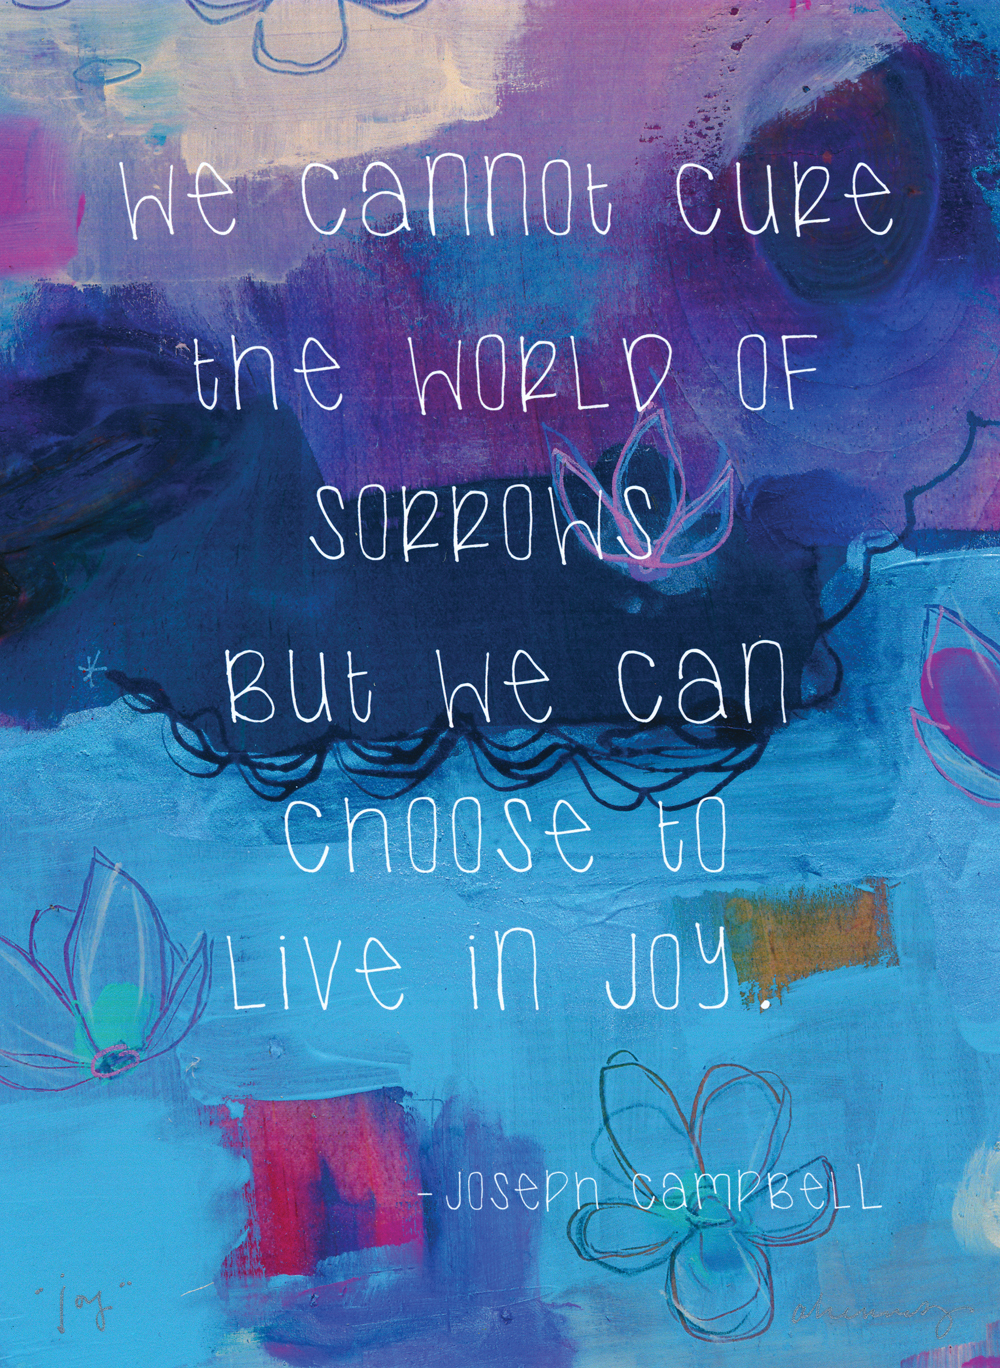 We cannot cure
the WORLD OF
SORROWS
But we can
choose to
Live in joy.
-Joseph Campbell
"joy"